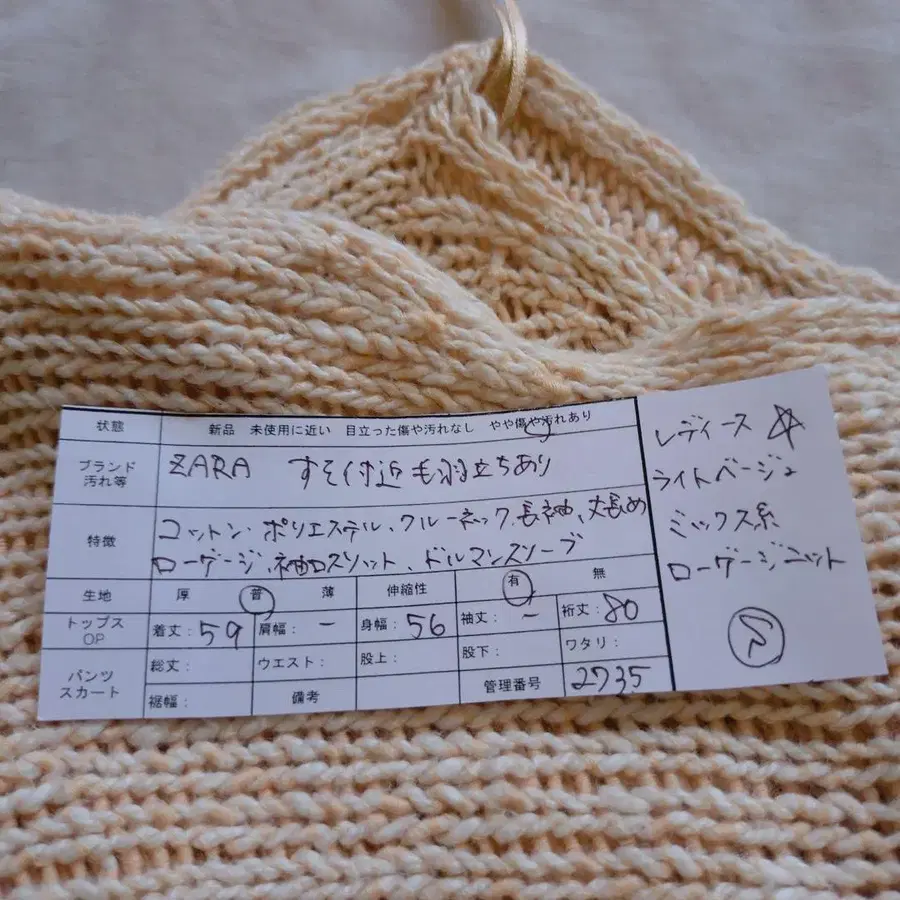 状態 新品 未使用に近い 目立った傷や汚れなし やや傷や汚れあり
ブランド 汚れ等 ZARA すそ付近毛羽立ちあり
特徴 コットン・ポリエステル、クルーネック、長袖、丈長め
ローゲージ、袖口スリット、ドルマンスリーブ
生地 厚 普 薄 伸縮性 有 無
トップス OP 着丈:59 肩幅:− 身幅:56 袖丈:− 裄丈:80
パンツ スカート 総丈: ウエスト: 股上: 股下: ワタリ:
裾幅: 備考 管理番号 2735
レディース
ライトベージュ
ミックス系
ローゲージニット